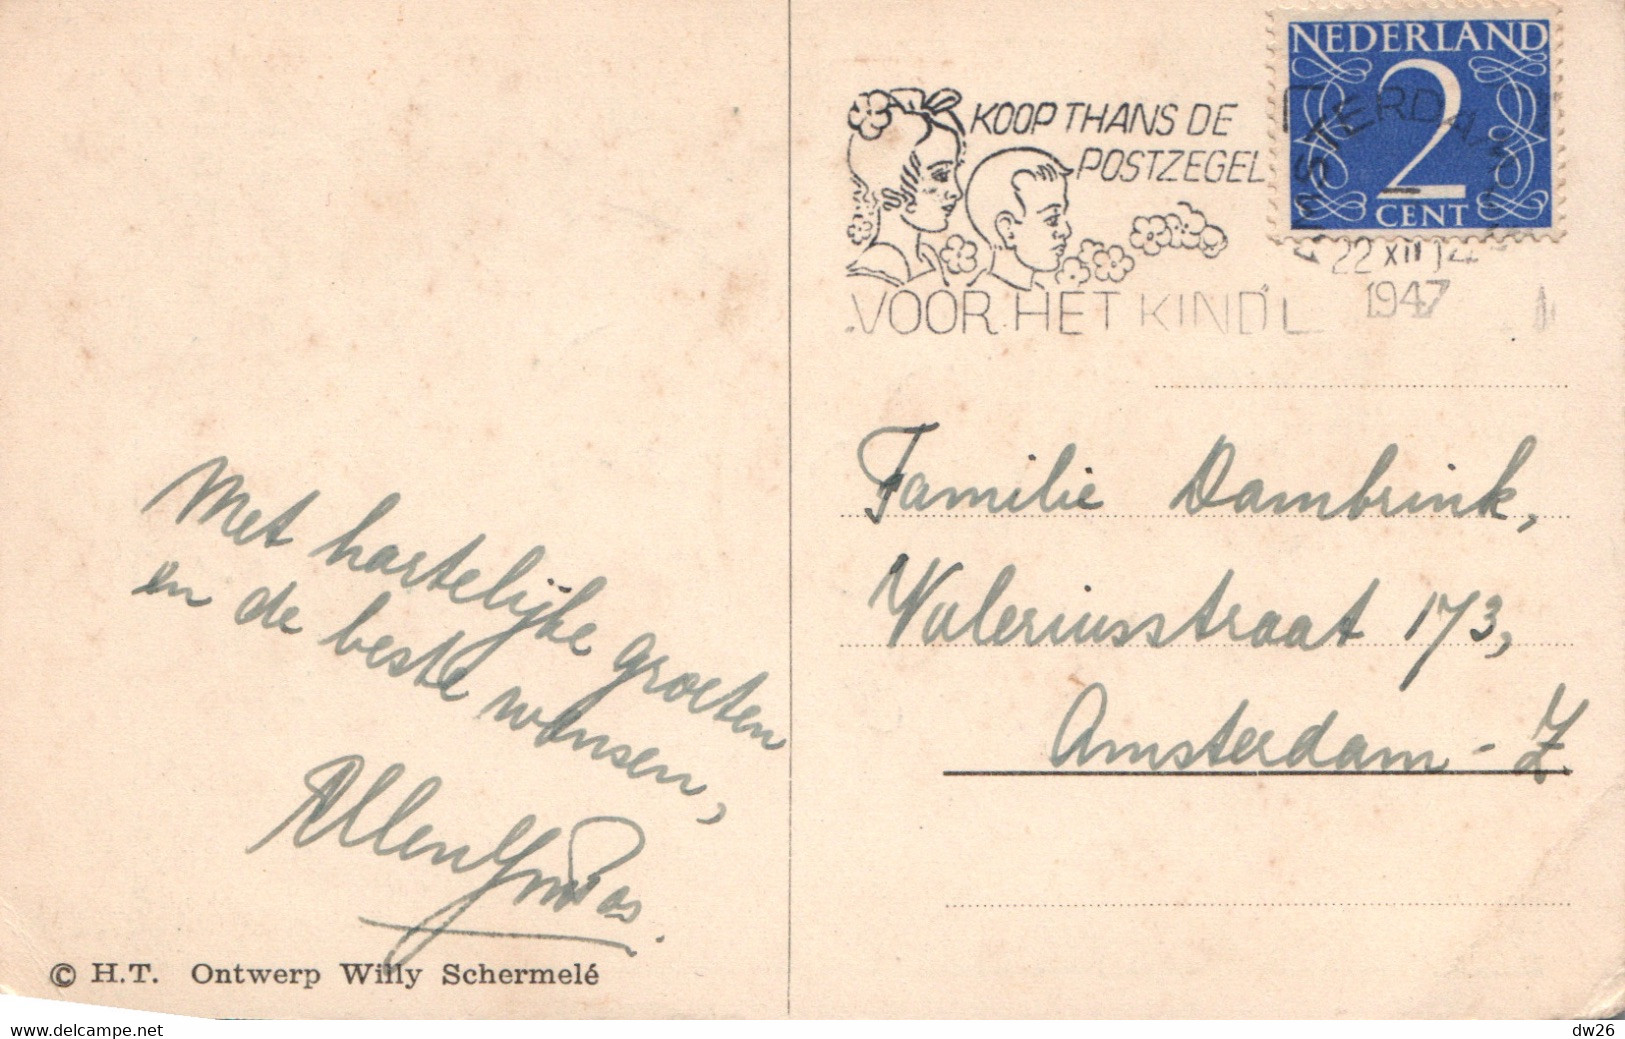 NEDERLAND
2
CENT
KOOP THANS DE
POSTZEGEL
VOOR HET KIND
AMSTERDAM
22 XII 14
1947
Met hartelijke groeten
en de beste wensen,
Familie Dambrink,
Valeriusstraat 173,
Amsterdam - Z.
© H.T. Ontwerp Willy Schermelé
www.delcampe.net
dw26